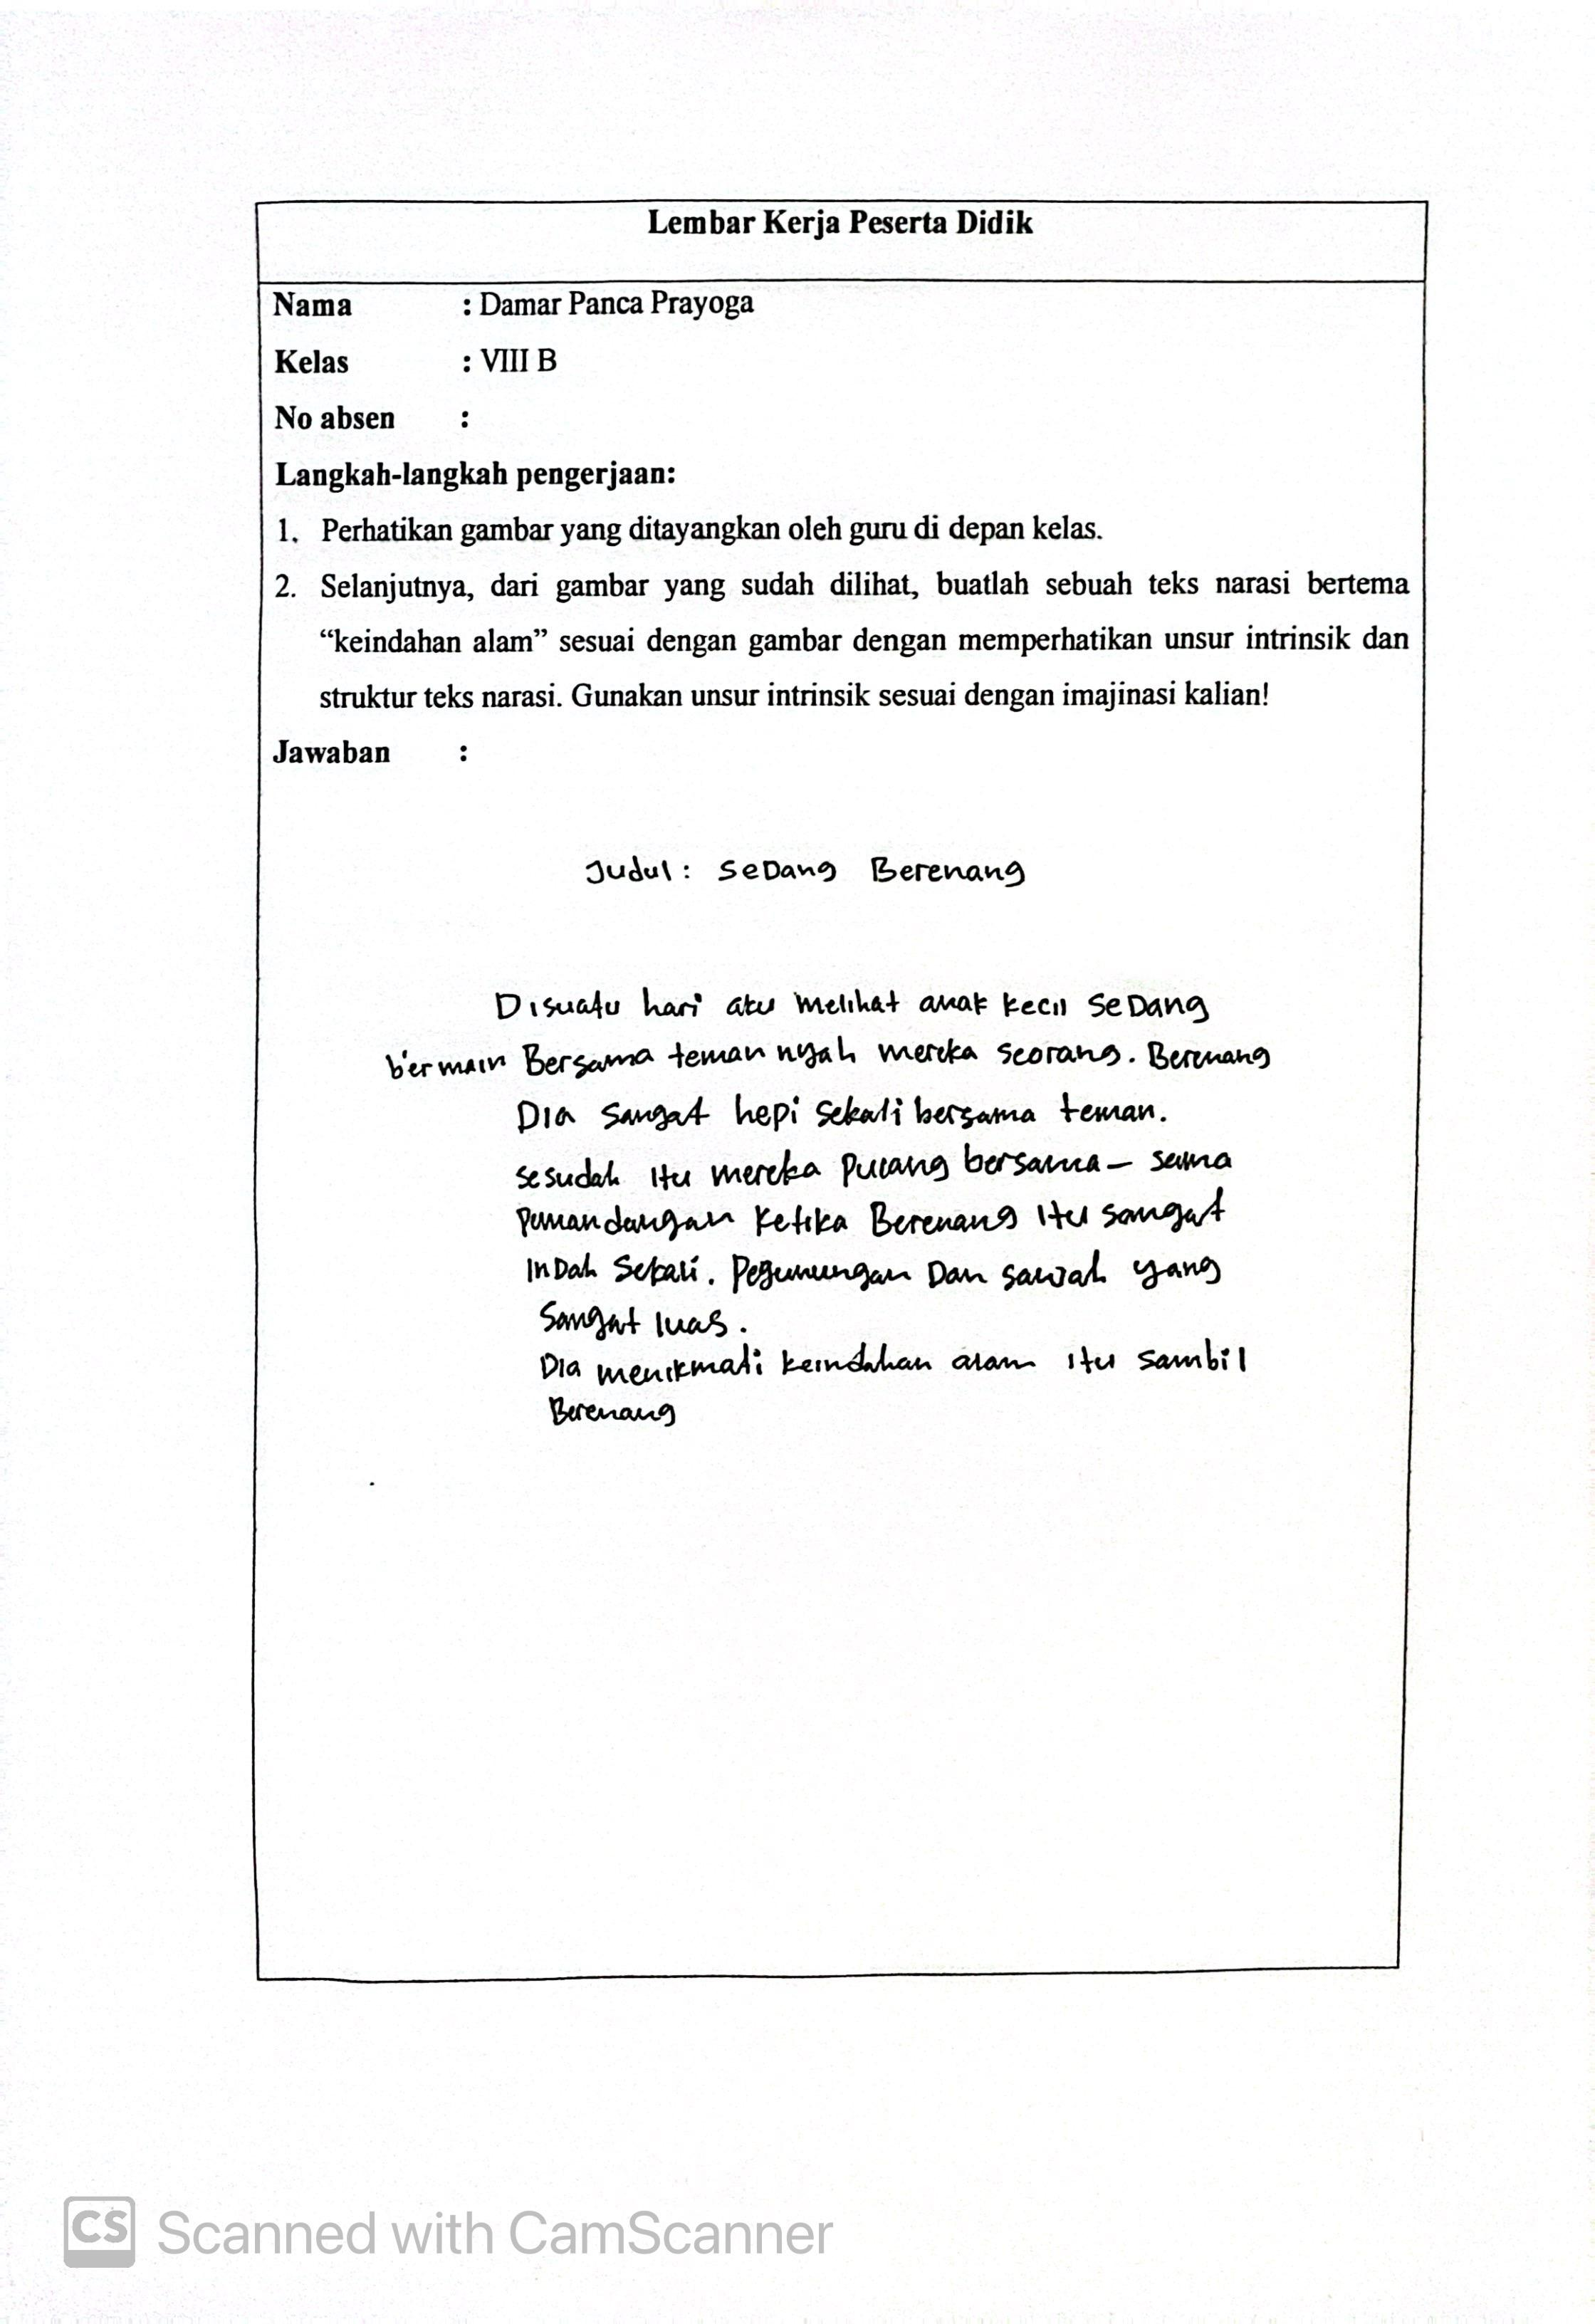 Lembar Kerja Peserta Didik
Nama : Damar Panca Prayoga
Kelas : VIII B
No absen :
Langkah-langkah pengerjaan:
1. Perhatikan gambar yang ditayangkan oleh guru di depan kelas.
2. Selanjutnya, dari gambar yang sudah dilihat, buatlah sebuah teks narasi bertema
“keindahan alam” sesuai dengan gambar dengan memperhatikan unsur intrinsik dan
struktur teks narasi. Gunakan unsur intrinsik sesuai dengan imajinasi kalian!
Jawaban :
Judul: SeDang Berenang
Disuatu hari aku melihat anak kecil SeDang
bermain Bersama teman nyah mereka seorang. Berenang
Dia sangat hepi sekali bersama teman.
sesudah itu mereka Pulang bersama - sama
Pemandangan Ketika Berenang Itu sangat
InDah Sekali. Pegunungan Dan sawah yang
Sangat luas.
Dia menikmati keindahan alam itu sambil
Berenang
CS Scanned with CamScanner